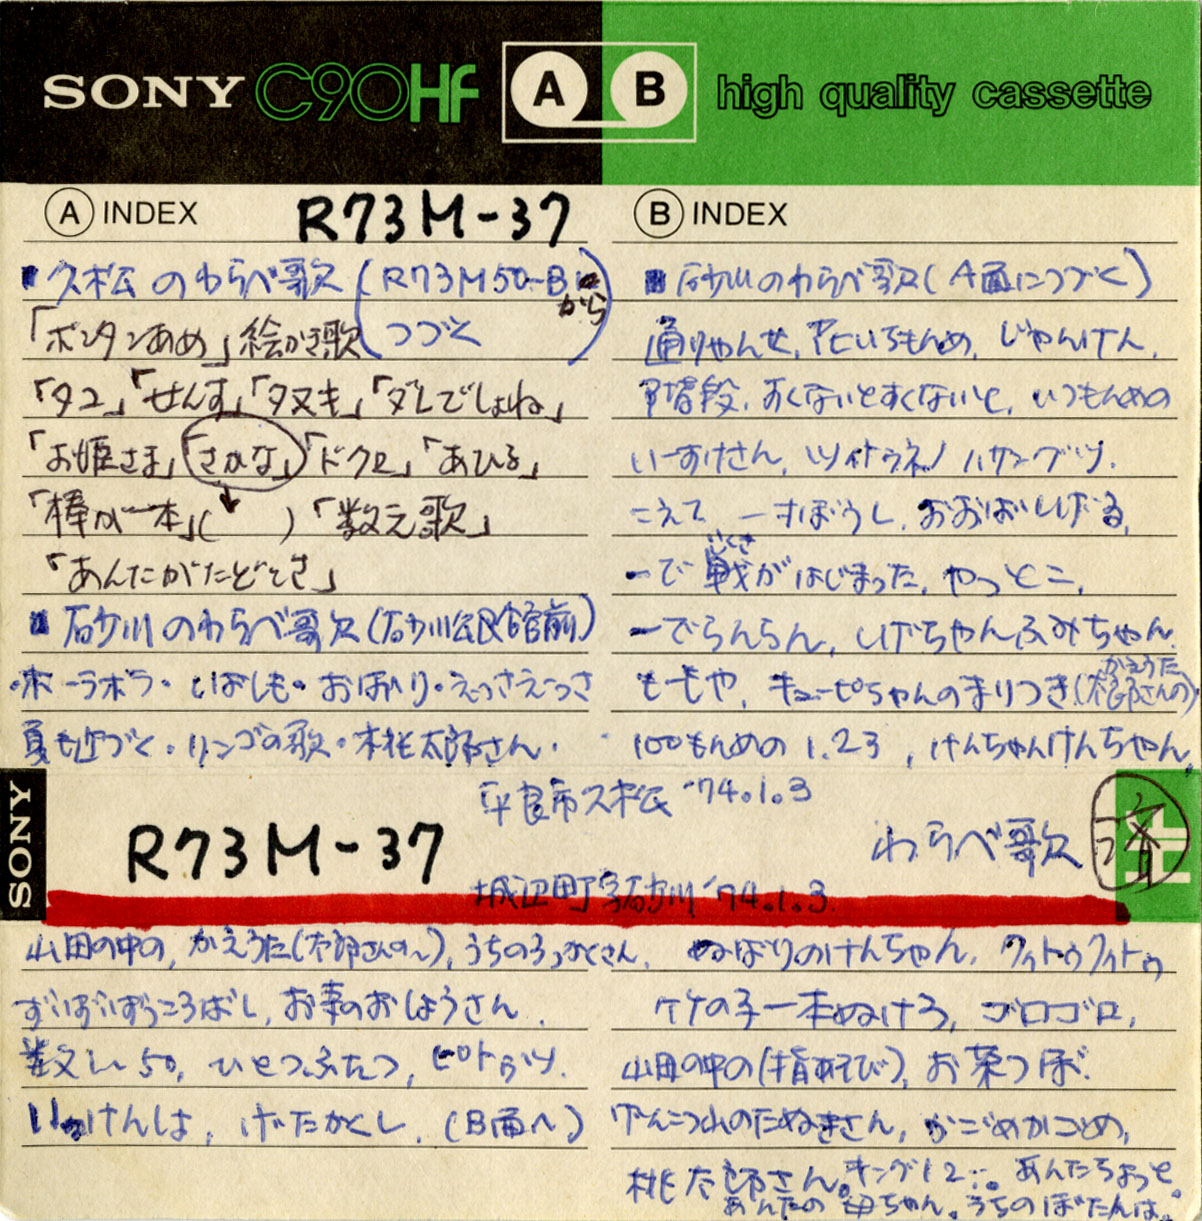 SONY C90Hf A B high quality cassette
A INDEX R73M-37
■久松のわらべ歌(R73M50-Bから
つづく)
「ボンタンあめ」絵かき歌
「タコ」「せんす」「タヌキ」「ダレでしょね」
「お姫さま」「さかな」「ドクロ」「あひる」
「棒が一本」( )「数え歌」
「あんたがたどこさ」
■砂川のわらべ歌(砂川公民館前)
・ホーラホラ・いましも・おはり・えっさえっさ
夏も近づく・リンゴの歌・桃太郎さん・
B INDEX
■砂川のわらべ歌(A面につづく)
通りゃんせ,花いちもんめ,じゃんけん,
階段,すくないとすくないと,いつもんめの
いーすけさん,
こえて,一寸ぼうし,おおばしげる,
一で戦がはじまった,やっとこ,
いくさ
一でらんらん,しげちゃんふみちゃん
もーもや,キューピちゃんのまりつき(太郎さんの)
かえうた
100もんめの1.23,けんちゃんけんちゃん,
平良市久松 '74.1.3
SONY R73M-37 わらべ歌 済
城辺町字砂川 '74.1.3
山田の中の,かえうた(太郎さんの〜),うちのうらのくさん,
ずいずいずっころばし,お寺のおしょうさん,
数え 50,ひとつふたつ,ピトゥツ,
いっけんは,げたかくし,(B面へ)
ぬばりのけんちゃん,クイトゥクイトゥ
竹の子一本ぬけろ,ゴロゴロ,
山田の中の(指あそび),お茶つぼ,
げんこつ山のたぬきさん,かごめかごめ,
桃太郎さん。キング12…。あんたちょっと。
あんたの母ちゃん。うちのぼたんは。